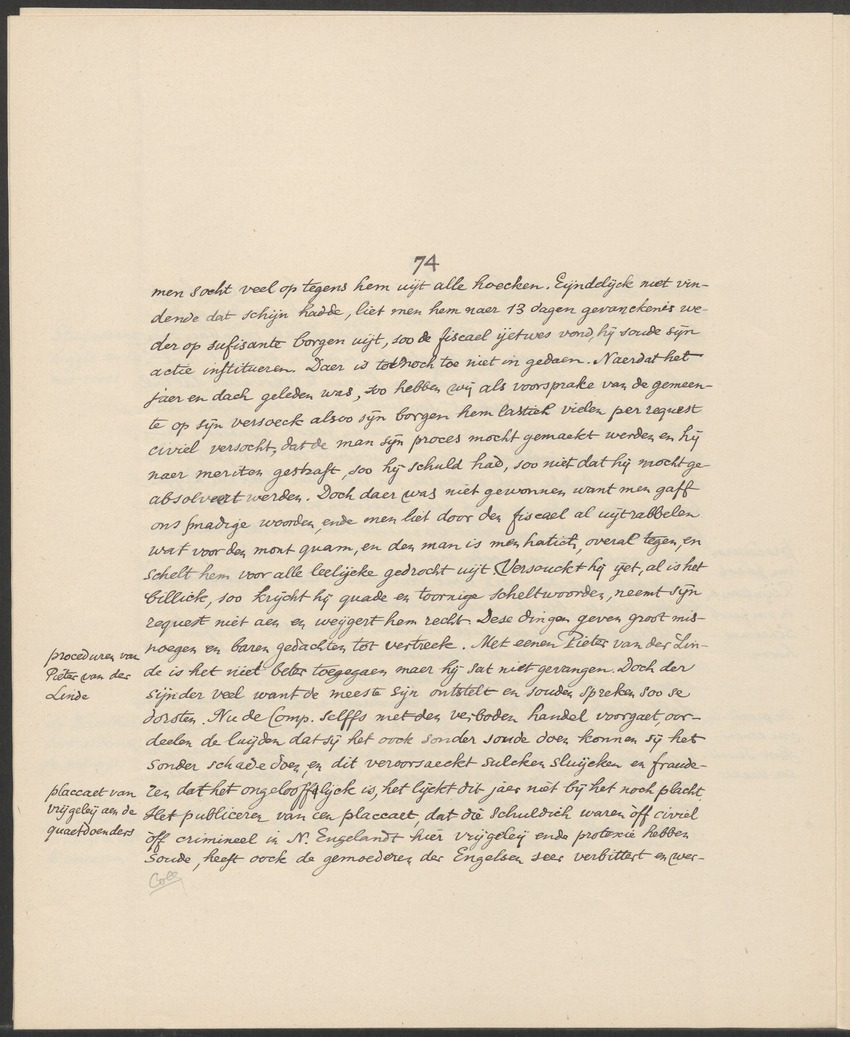 74
men socht veel op tegens hem uijt alle hoecken. Eijnddijck niet vin-
dende dat schijn hadde, liet men hem naer 13 dagen gevanckenis we-
der op sufisante borgen uijt, soo de fiscael ijetwes vond, hij soude sijn
actie institueren. Daer is tot noch toe niet in gedaen. Naerdat het
jaer en dach geleden was, soo hebben wij als voorsprake van de gemeen-
te op sijn versoeck alsoo sijn borgen hem lastich vielen per request
civiel versocht, dat de man sijn proces mocht gemaekt werden en hij
naer meriten gestraft, soo hij schuld had, soo niet dat hij mocht ge-
absolveert werden. Doch daer was niet gewonnen want men gaff
ons smadige woorden, ende men liet door den fiscael al uijtrabbelen
wat voor den mont quam, en den man is men hatich, overal tegen, en
schelt hem voor alle leelijcke gedrocht uijt. Versouckt hij ijet, al is het
billick, soo krijcht hij quade en toornige scheltwoorden, neemt sijn
request niet aen en weijgert hem recht. Dese dingen geven groot mis-
noegen en baren gedachten tot vertreck. Met eenen Pieter van der Lin-
proceduren van
Pieter van der
Linde
de is het niet beter toegegaen maer hij sat niet gevangen. Doch der
sijnder veel want de meeste sijn ontstelt en souden spreken soo se
dorsten. Nu de Comp. selffs met den verboden handel voorgaet, oor-
deelen de luijden dat sij het oock sonder soude doen konnen sij het
sonder schade doen, en dit veroorsaeckt sulcken sluijcken en fraude-
ren dat het ongelooffelijck is, het lijckt dit jaer niet bij het noch placht.
placcaet van
vrijgeleij aen de
quaetdoenders
Het publiceren van een placcaet, dat die schuldich waren off civiel
off crimineel in N. Engelandt hier vrijgeleij ende protexie hebben
soude, heeft oock de gemoederen der Engelsen seer verbittert en wer-
Coll